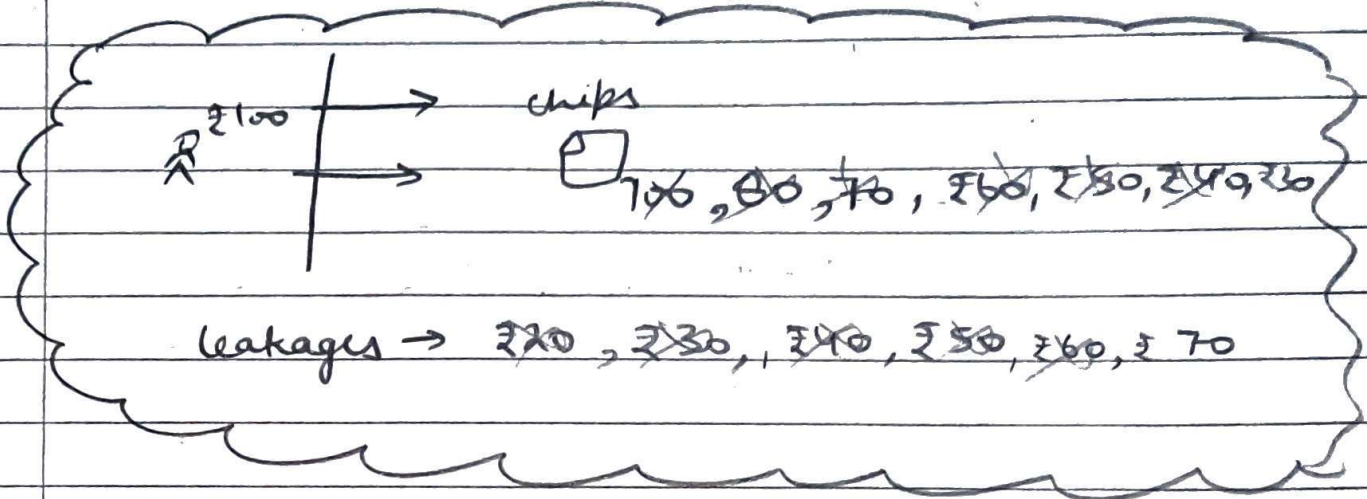 ₹100
chips
100, 80, 70, ₹60, ₹50, ₹40, ₹30
leakages → ₹20, ₹30, ₹40, ₹50, ₹60, ₹ 70